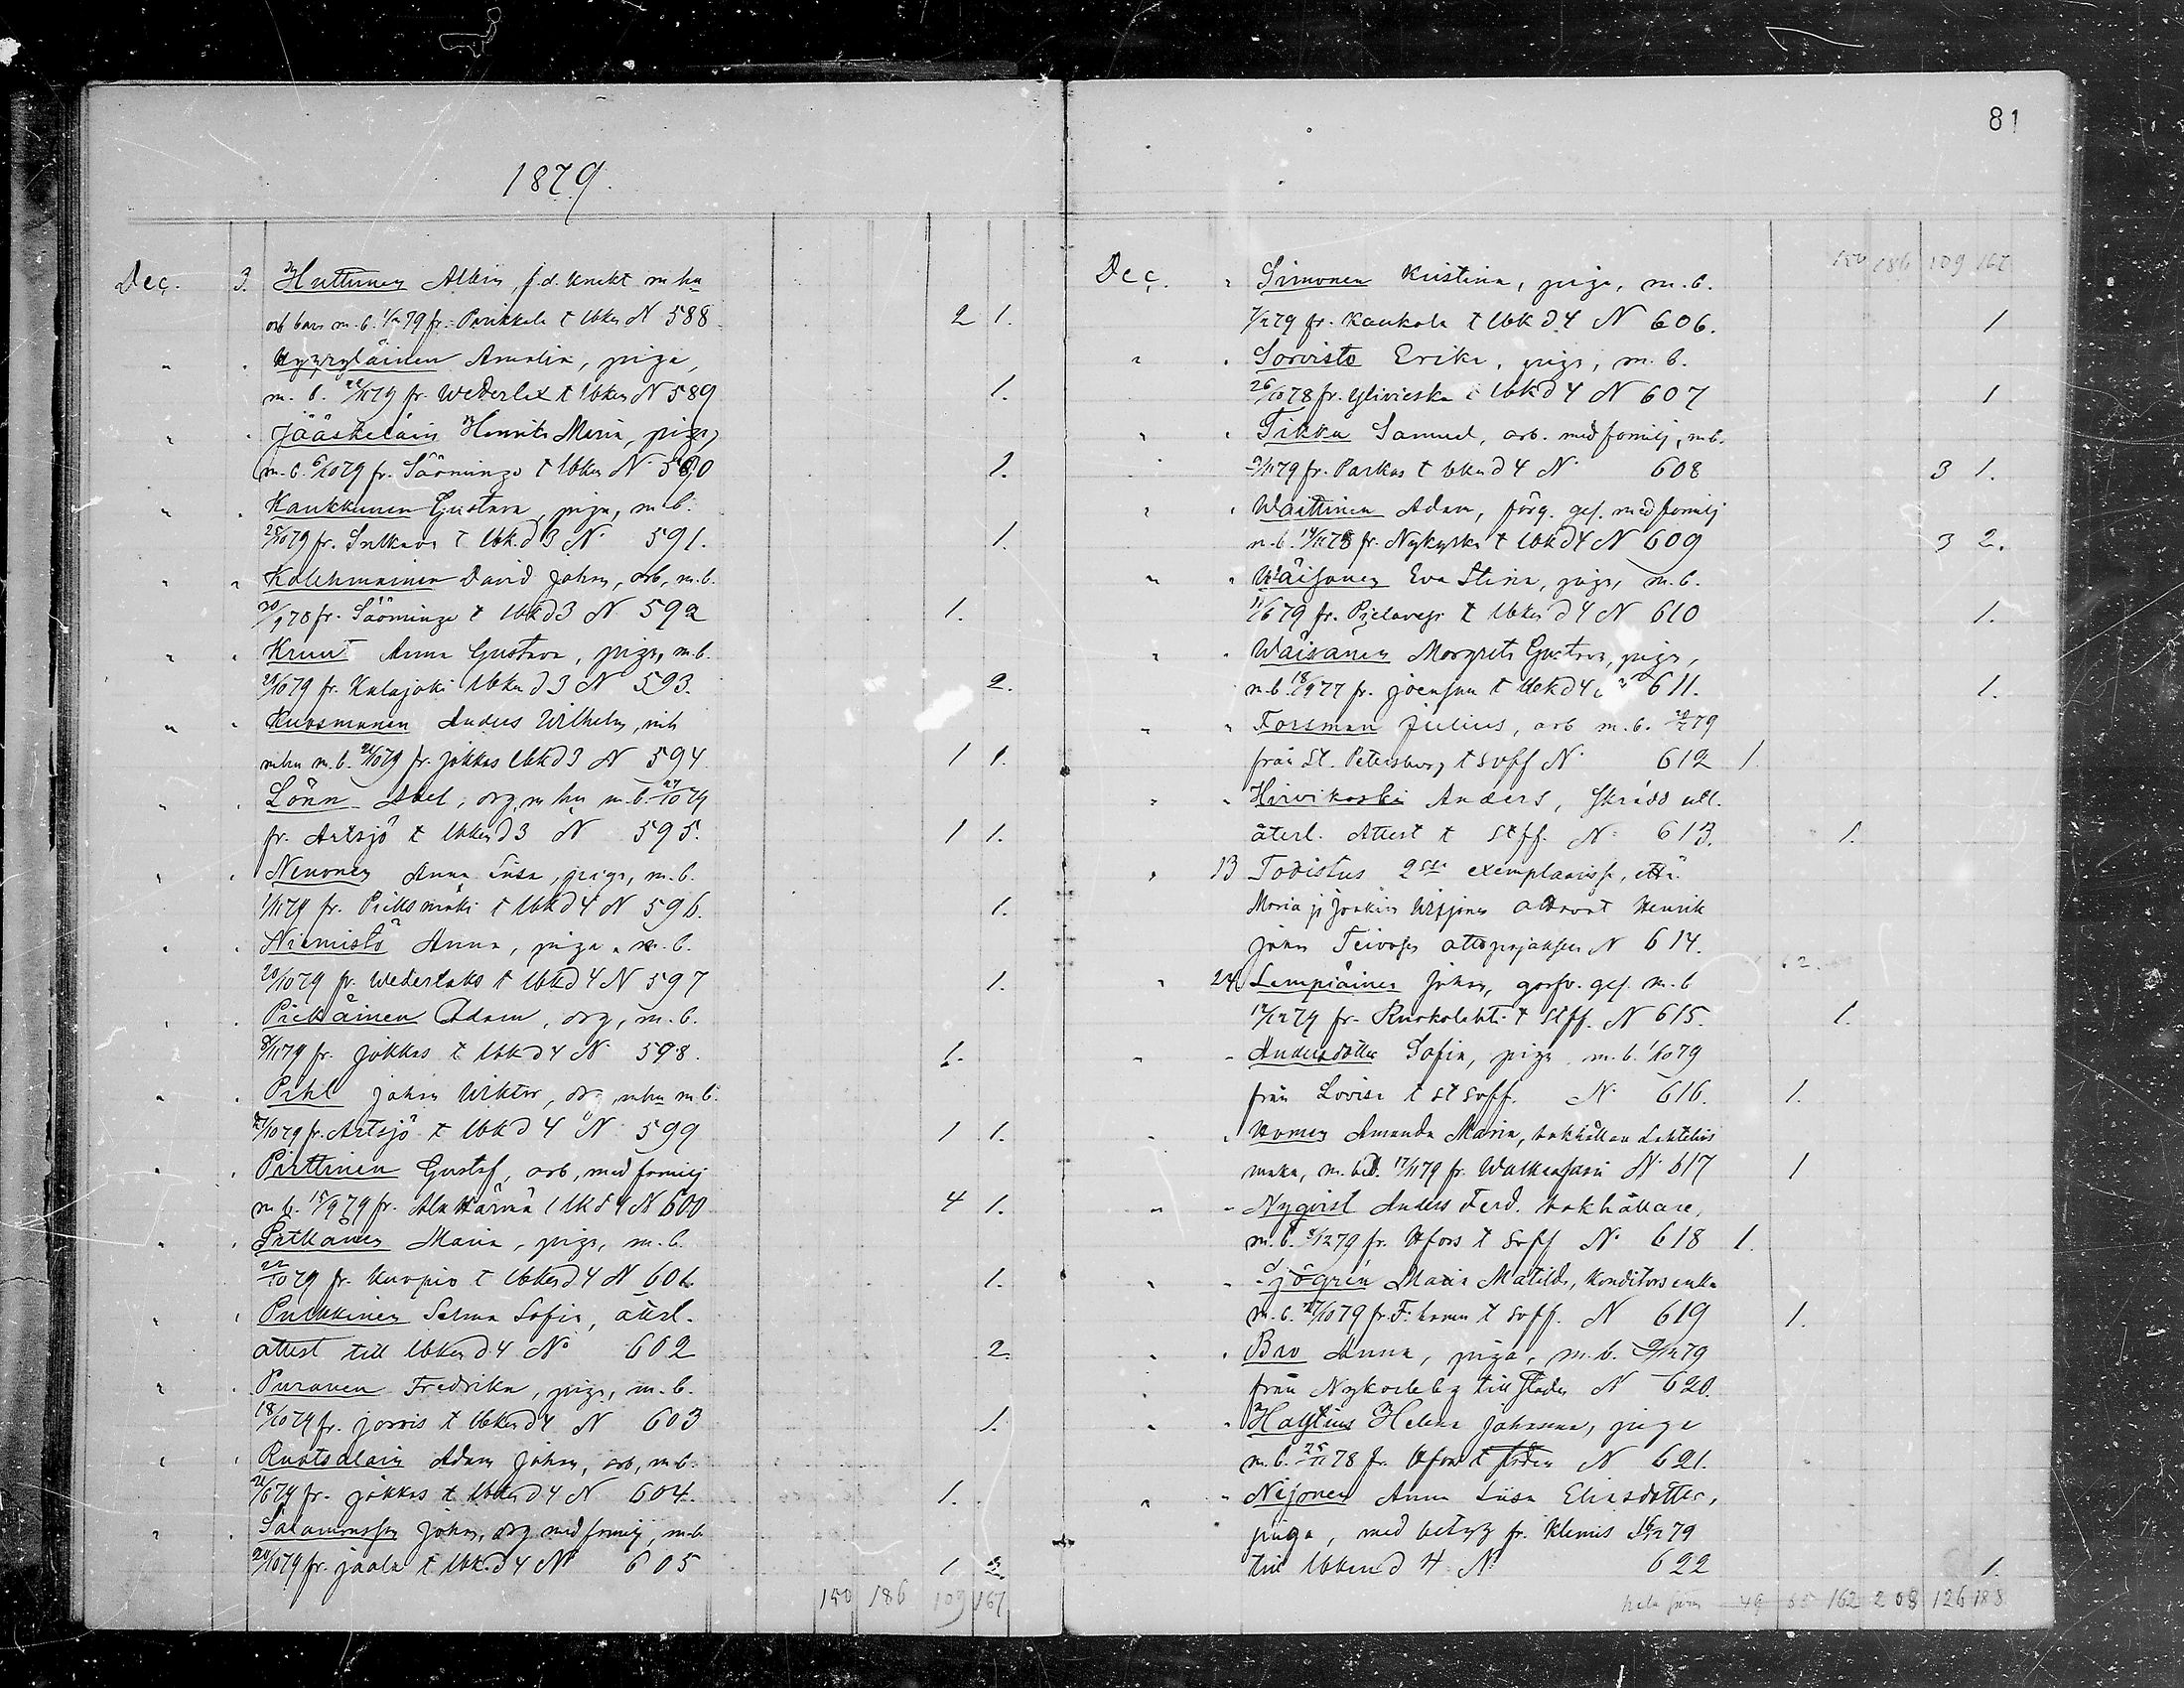 81
1879.
Dec. 3. Huttunen Albin, f.d. knekt m hu
och barn m. b. 1/12 79 fr. Parikkala t lbken N 588 2 1.
" " Kyyryläinen Amalia, piga,
m. b. 22/11 79 fr. Wederlax t lbken N 589 1.
" " Jääskeläin Henrika Maria, piga,
m. b. 6/10 79 fr. Sääminge t lbken N 590 1.
" " Kaukkunen Gustava, piga, m b.
25/10 79 fr. Sulkava t lbk. d 3 N 591. 1.
" " Kolehmainen David Johan, arb, m. b.
30/9 78 fr. Sääminge t lbk d 3 N 592 1.
" " Kruut Anna Gustava, piga, m. b.
28/10 79 fr. Kalajoki lbken d 3 N 593. 2.
" " Kuosmanen Anders Wilhelm,
mhu m. b. 21/10 79 fr. Jokkas lbk d 3 N 594 1 1.
" " Lönn Abel, drg, m hu m. b. 27/10 79
fr. Artsjö t lbken d 3 N 595. 1 1.
" " Nenonen Anna Lisa, piga, m. b.
1/11 79 fr. Pieksmäki t lbk d 4 N 596. 1.
" " Niemistö Anna, piga, m. b.
20/10 79 fr. Wederlaks t lbk d 4 N 597 1.
" " Piekäinen Adam, drg, m. b.
8/11 79 fr. Jokkas t lbk d 4 N 598. 1.
" " Pihl Johan Viktor, drg, mhu m. b.
27/10 79 fr. Artsjö t lbk d 4 N 599 1 1.
" " Pirttinen Gustaf, arb, med familj
m b. 15/9 79 fr. Ala Härmä t lbk d 4 N 600 4 1.
" " Pitkänen Maria, piga, m. b.
22/10 79 fr. Kuopio t lbken d 4 N 601. 1.
" " Pulkkinen Selma Sofia, återl.
attest till lbken d 4 No 602 2.
" " Puranen Fredrika, piga, m. b.
18/10 79 fr. Jorois t lbken d 4 N 603 1.
" " Ruotsalain Adam Johan, arb, m b.
21/6 79 fr. Jokkas t lbken d 4 N 604. 1.
" " Salamonsson Johan, drg med familj, m b
20/10 79 fr. Jaala t lbk. d 4 No 605 1 2.
150 186 109 167
150 186 109 167
Dec. " Simonen Kristina, piga, m. b.
7/12 79 fr. Kaukola t lbk d. 4 N 606. 1
" " Sorvisto Erika, piga, m. b.
26/10 78 fr. Ylivieska t lbk d 4 N 607 1
" " Tikka Samuel, arb. med familj, m b.
3/11 79 fr. Parkas t lbken d 4 N 608 3 1.
" " Waittinen Adam, färg. ges. med familj
m. b. 14/11 78 fr. Nykyrka t lbk d 4 N 609 3 2.
" " Wäisänen Eva Stina, piga, m. b.
11/6 79 fr. Pielavesi t lbken d 4 N 610 1.
" " Wäisänen Margreta Gustava, piga,
m b. 18/9 77 fr. Joensuu t lbk d 4 611. 1.
" " Forsman Julius, arb m. b. 79
från St. Petersburg t svff N 612 1.
" " Hirvikoski Anders, skrädd. ell.
återl. Attest t Stff. N 613. 1.
" 13 Todistus 2ssa exemplaarissa, että
Maria ja Joakim ottavat Henrik
Johan ottopojaksensa N 614.
" 24 Lempiäinen Johan, garfv. ges. m. b
fr. Ruokolahti t Stff. N 615. 1.
" " Andersdotter Sofia, piga m. b. 1/10 79
från Lovisa t St svff. N 616. 1.
" " Homen Amanda Maria, bokhållar Lehtelius
maka, m. bet. 17/11 79 fr. Walkeasaari N 617 1
" " Nyqvist Anders Ferd. bokhållare,
m. b. 8/12 79 fr. Hfors t svff N 618 1.
" " Sjögren Maria Matilda, Konditors enka
m. b. 27/10 79 fr F. hamn t svff. N 619 1.
" " Bro Anna, piga, m. b. 79
från Nykarleby till staden N 620.
" " Helena Johanna, piga
m. b. 25/11 78 fr. Hfors t staden N 621.
" " Neijonen Anna Liisa Eliasdotter,
piga, med betyg fr. Klemis 79
till lbken d 4 N 622 1.
hela 49 65 162 208 126 188